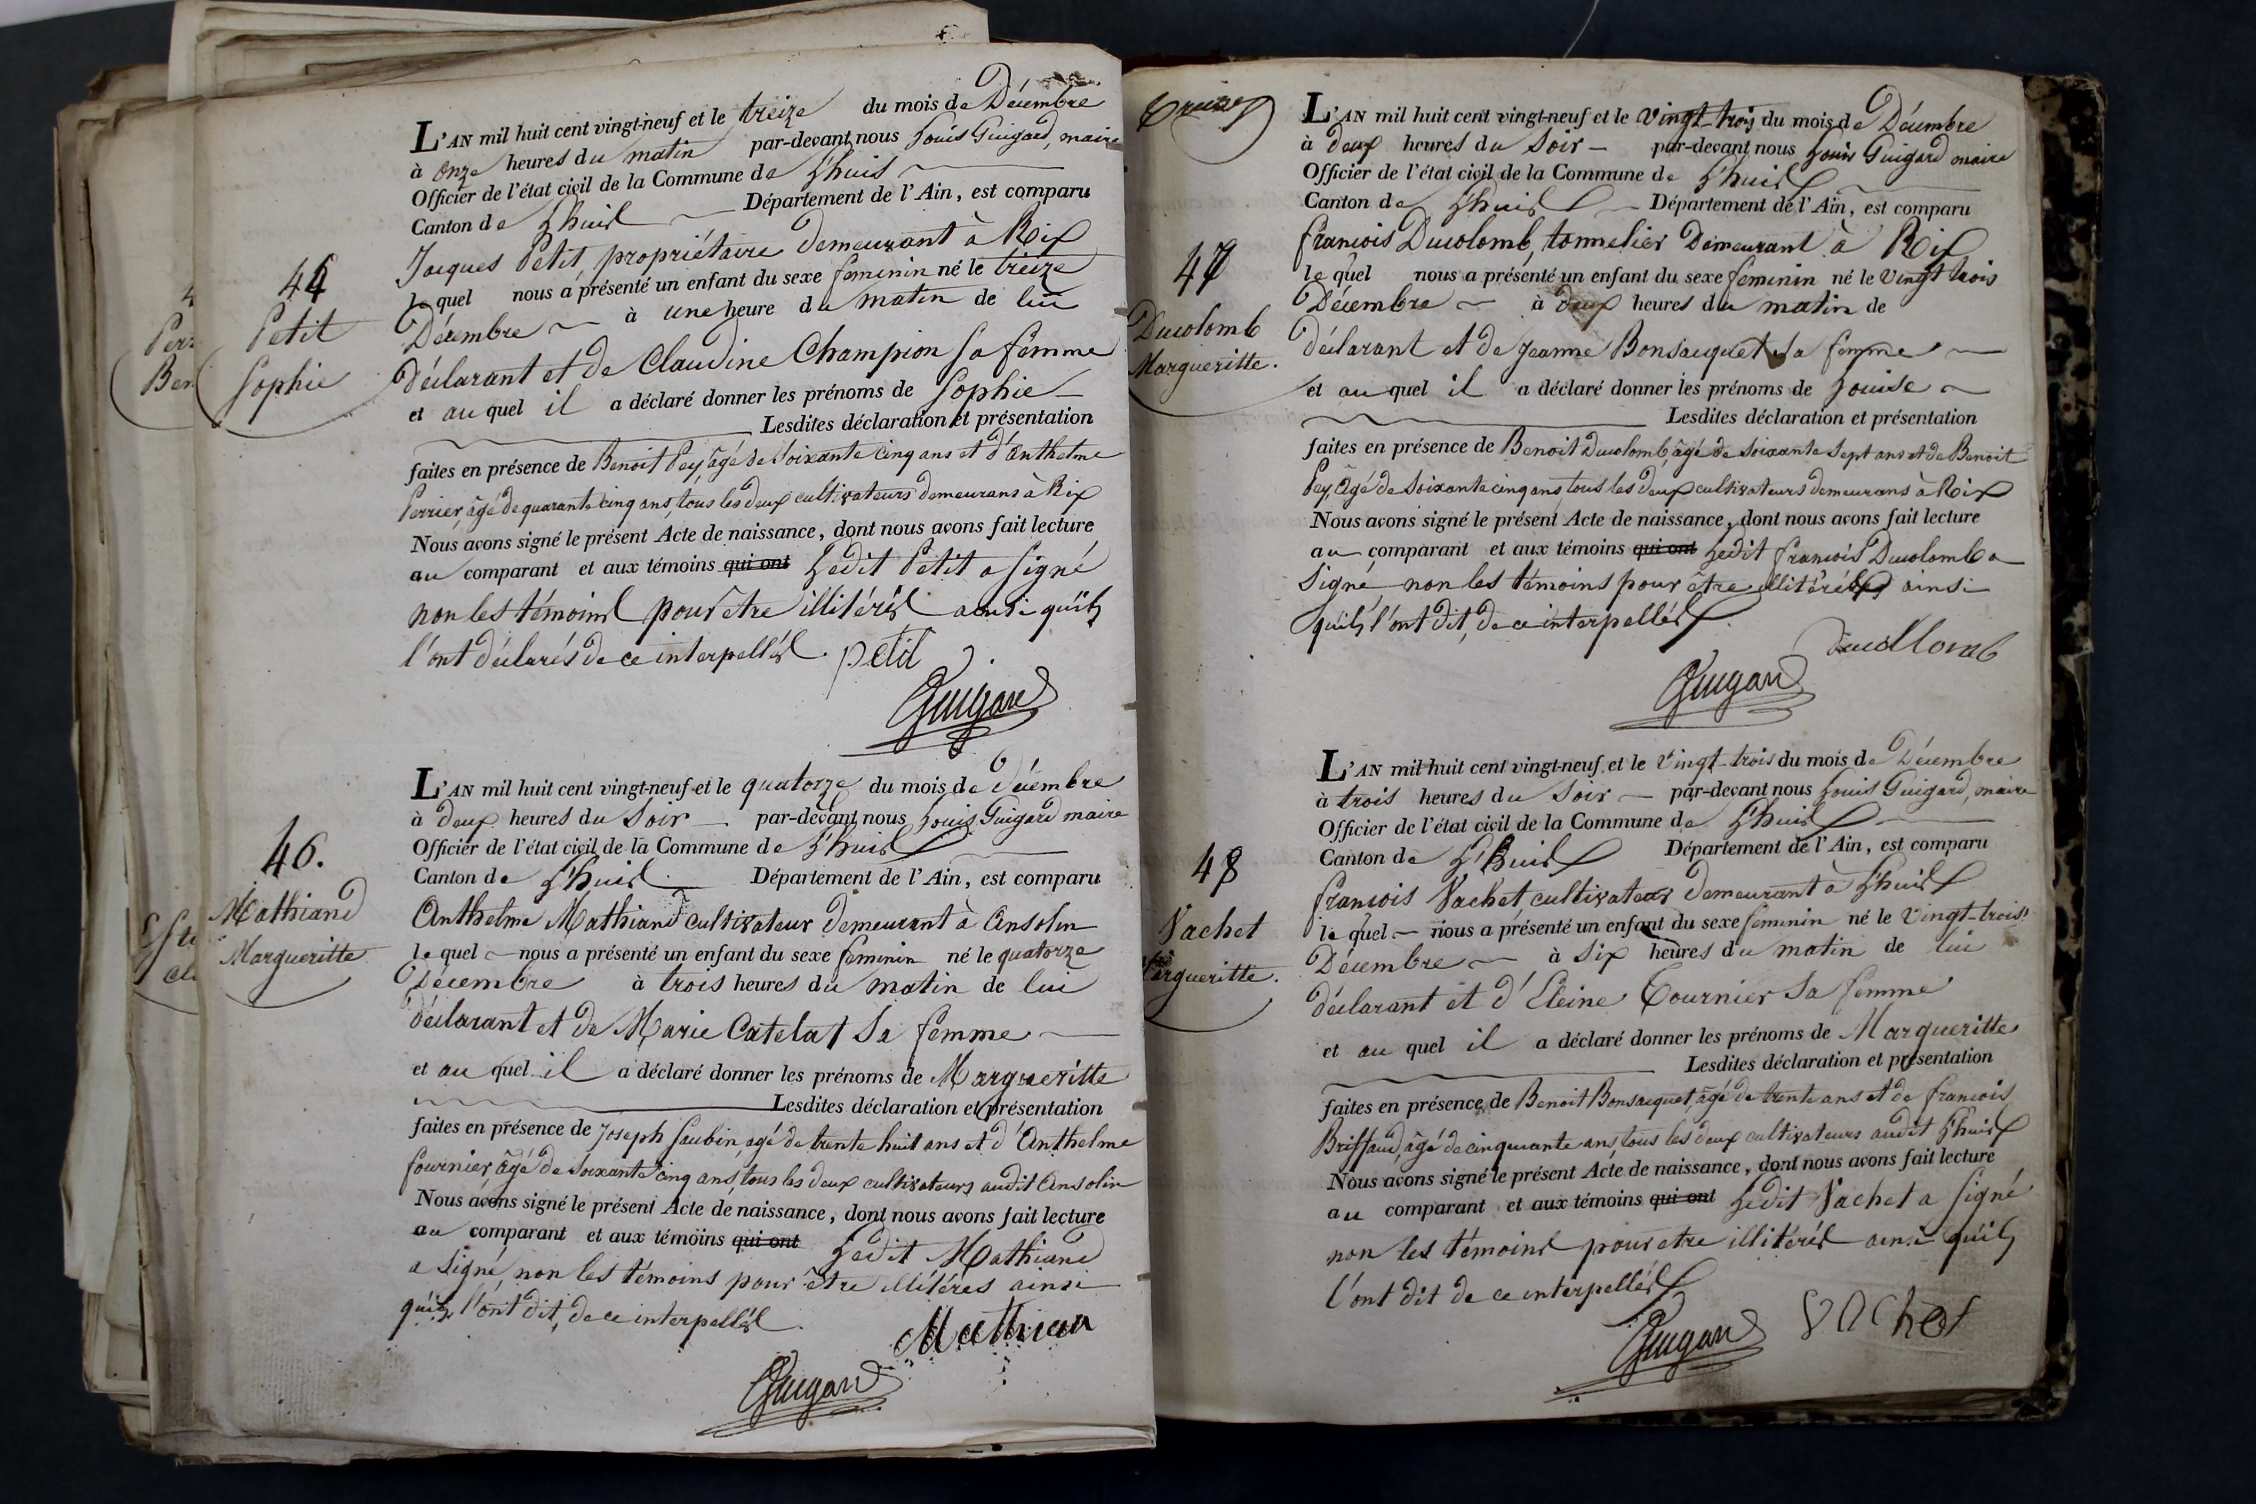 45
Petit
Sophie
L'AN mil huit cent vingt-neuf et le treize du mois de Décembre
à onze heures du matin par-devant nous Louis Guigard, maire
Officier de l'état civil de la Commune de L'huis
Canton de L'huis Département de l'Ain, est comparu
Jacques Petit propriétaire demeurant à Rix
le quel nous a présenté un enfant du sexe feminin né le treize
Décembre à une heure du matin de lui
déclarant et de Claudine Champion sa femme
et au quel il a déclaré donner les prénoms de Sophie
Lesdites déclaration et présentation
faites en présence de Benoit Pey, âgé de soixante cinq ans et d'Anthelme
Perrier, âgé de quarante cinq ans, tous les deux cultivateurs demeurans à Rix
Nous avons signé le présent Acte de naissance, dont nous avons fait lecture
au comparant et aux témoins qui ont Ledit Petit a signé
non les témoins pour être illitérés ainsi qu'ils
l'ont déclarés de ce interpellés.
petit
Guigard
46.
Mathiand
Margueritte
L'AN mil huit cent vingt-neuf et le quatorze du mois de décembre
à deux heures du soir par-devant nous Louis Guigard maire
Officier de l'état civil de la Commune de L'huis
Canton de L'huis Département de l'Ain, est comparu
Anthelme Mathiand cultivateur demeurant à Ansolin
le quel nous a présenté un enfant du sexe feminin né le quatorze
Décembre à trois heures du matin de lui
déclarant et de Marie Catelat sa femme
et au quel il a déclaré donner les prénoms de Margueritte
Lesdites déclaration et présentation
faites en présence de Joseph Saubin, agé de trente huit ans et d'Anthelme
fournier, âgé de soixante cinq ans, tous les deux cultivateurs audit Ansolin
Nous avons signé le présent Acte de naissance, dont nous avons fait lecture
au comparant et aux témoins qui ont Ledit Mathiand
a signé non les témoins pour être illitéres ainsi
qu'ils l'ont dit, de ce interpellés.
Mathian
Guigard
47
Ducolomb
Margueritte.
L'AN mil huit cent vingt-neuf et le vingt-trois du mois de Décembre
à deux heures du soir par-devant nous Louis Guigard maire
Officier de l'état civil de la Commune de L'huis
Canton de L'huis Département de l'Ain, est comparu
francois Ducolomb, tonnelier demeurant à Rix
le quel nous a présenté un enfant du sexe feminin né le vingt trois
Décembre à deux heures du matin de
déclarant et de Jeanne Bonsacquet sa femme
et au quel il a déclaré donner les prénoms de Louise
Lesdites déclaration et présentation
faites en présence de Benoit Ducolomb, âgé de soixante sept ans et de Benoit
Pey, âgé de soixante cinq ans tous les deux cultivateurs demeurans à Rix
Nous avons signé le présent Acte de naissance, dont nous avons fait lecture
au comparant et aux témoins qui ont Ledit francois Ducolomb a
signé non les témoins pour être illitérés ainsi
qu'ils l'ont dit, de ce interpellés
Ducollomb
Guigard
48
Vachet
Margueritte.
L'AN mil huit cent vingt-neuf et le vingt-trois du mois de Décembre
à trois heures du soir par-devant nous Louis Guigard, maire
Officier de l'état civil de la Commune de L'huis
Canton de L'huis Département de l'Ain, est comparu
francois Vachet cultivateur demeurant à L'huis
le quel nous a présenté un enfant du sexe feminin né le vingt-trois
Décembre à six heures du matin de lui
déclarant et d'Eleine Tournier sa femme
et au quel il a déclaré donner les prénoms de Margueritte
Lesdites déclaration et présentation
faites en présence de Benoit Bonsacquet, âgé de trente ans et de francois
Briffaud, âgé de cinquante ans, tous les deux cultivateurs audit L'huis
Nous avons signé le présent Acte de naissance, dont nous avons fait lecture
au comparant et aux témoins qui ont Ledit Vachet a signé
non les témoins pour etre illitérés ainsi qu'ils
l'ont dit de ce interpellés
Guigard
Vachet